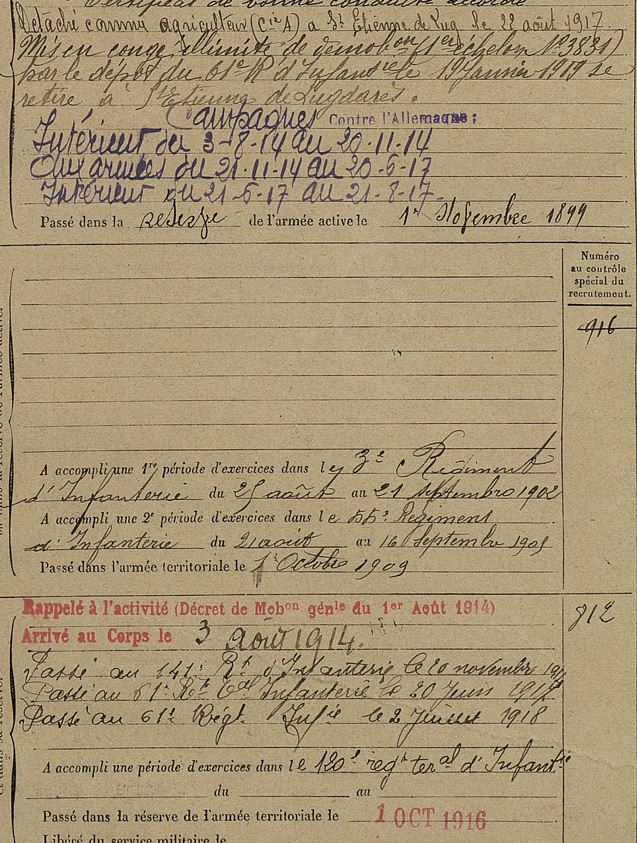 Certificat de bonne conduite accordé
Détaché comme agriculteur (Cie A) a St Etienne de Lug. le 22 août 1917.
Mis en congé illimité de démobon (1er échelon No 3831)
par le dépôt du 61e R d'Infanterie le 19 Janvier 1919 se
retire à St Etienne de Lugdarès.
Campagnes Contre l'Allemagne :
Intérieur du 3-8-14 au 20-11-14
Aux armées du 21-11-14 au 20-6-17
Intérieur du 21-6-17 au 21-8-17.
Passé dans la réserve de l'armée active le 1er Novembre 1899
Numéro
au contrôle
spécial du
recrutement.
916
A accompli une 1re période d'exercices dans le 3e Régiment
d'Infanterie du 25 août au 21 Septembre 1902
A accompli une 2e période d'exercices dans le 55e Régiment
d'Infanterie du 21 août au 16 Septembre 1905
Passé dans l'armée territoriale le 1er Octobre 1909
Rappelé à l'activité (Décret de Mobon génle du 1er Août 1914)
Arrivé au Corps le 3 août 1914.
812
Passé au 141e Rt d'Infanterie le 20 novembre
Passé au 61e Rgt Infanterie le 20 Juin 1917
Passé au 61e Régt Infie le 2 Juillet 1918
A accompli une période d'exercices dans le 120e regt teral d'Infantie
du au
Passé dans la réserve de l'armée territoriale le 1 OCT 1916
Libéré du service militaire le